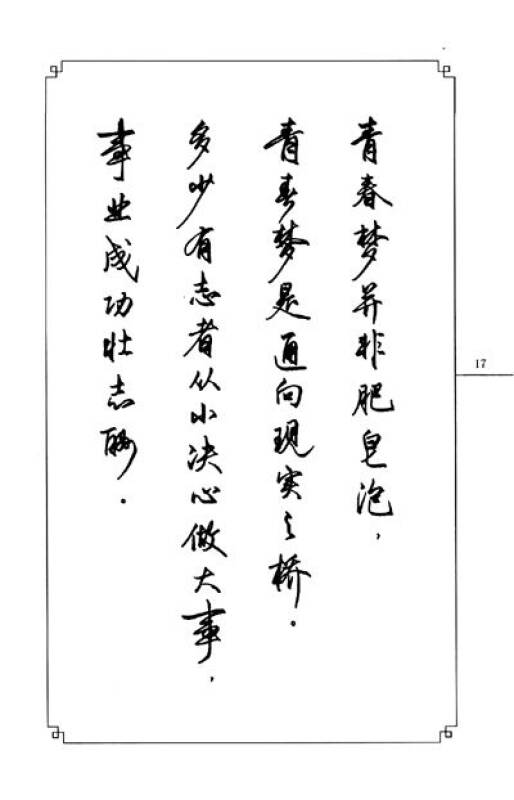 青春梦并非肥皂泡，
青春梦是通向现实之桥。
多少有志者从小决心做大事，
事业成功壮志酬。
17